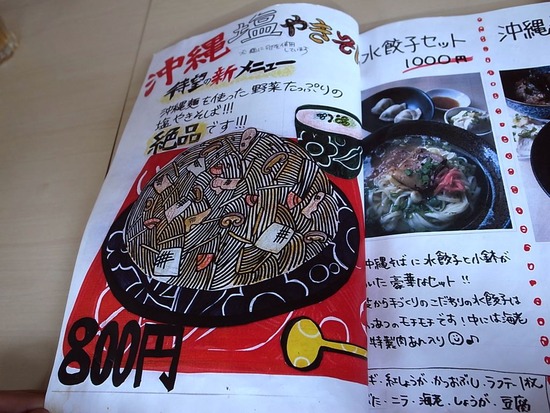 沖縄塩やきそ
待望の新メニュー
沖縄麺を使った野菜たっぷりの
塩やきそば!!!
絶品です!!!
800円
水餃子セット
1000円
沖縄そばに水餃子と小鉢が
いた豪華なセット!!
から手づくりのこだわりの水餃子は
モチモチです!中には海老
特製肉あん入り
ギ・紅しょうが・かつおぶし・ラフテー1枚
ぶた・ニラ・海老・しょうが・豆腐
沖縄